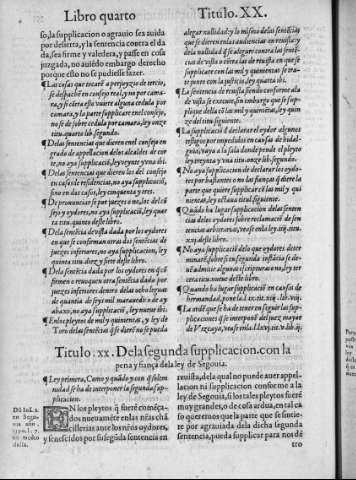 Libro quarto
Titulo. XX.
so, la supplicacion o agrauio sea auida
por desierta, y la sentencia contra el da
da, sea firme y valedera, y passe en cosa
juzgada, no auiẽdo embargo derecho
porque esto no se pudiesse fazer.
¶ Las cosas que tocarẽ a perjuyzio de tercio,
se despachẽ en consejo real, y no por cama-
ra, y si cõtra esto vuiere alguna cedula por
camara, y la parte supplicare en el consejo,
no se de sobre cedula por camara, ley onze
titu. quarto lib. segundo.
¶ Delas sentencias que dieren en el consejo en
grado de appellacion delos alcaldes de cor-
te, no aya supplicaciõ, ley veynte y vna ibi.
¶ Delas sentencias que dieren los del consejo
en casos de residencias, no aya supplicaciõ,
sino en dos casos, ley cinquenta y tres.
¶ De pronunciar se por juezes o no, los del cõ
sejo y oydores, no aya supplicaciõ, ley quar
ta titu. quinto deste libro.
¶ Dela sentẽcia de vista dada por los oydores
en que se confirman otras dos sentẽcias de
juezes inferiores, no aya supplicacion, ley
quinta titu. diez y siete deste libro.
¶ Dela sentẽcia dada por los oydores en q̃ cõ
firmen o reuoquen otra sentẽcia dada por
juezes inferiores dentro delas ocho leguas
de quantia de seys mil marauedis o de ay
abaxo, no aya supplicaciõ, ley nueue ibi.
¶ Enlos pleytos de mil y quinientas, y ley de
Toro delas sentẽcias q̃ se dierẽ no se pueda
alegar nullidad: y lo mismo delas sentẽcias
que se dieren en las audiencias en reuista: y
dela nullidad q̃ se alegare contra las sentẽ-
cias de vista o cõtra las de reuista en que se
supplicare con las mil y quinientas se tra-
te junto con la justicia, ley
¶ La sentencia de reuista siendo conforme ala
de vista se execute, sin embargo que se sup-
plique della cõ las mil y quinientas, ley quin
ze del mismo titulo.
¶ La supplicaciõ q̃ declarare el oydor algunos
testigos por impedidos en causas de hidal-
guia, vaya ala sala donde pende el pleyto
ley treynta y vna titu. onze lib. segundo.
¶ No aya supplicacion de declarar los oydo-
res por bastantes o no las fianças q̃ diere la
parte que quiere supplicar cõ las mil y qui
nientas, ley octaua titu. siguiente.
¶ Quãdo ha lugar supplicacion delas senten
cias delos oydores sobre reclamaciõ de sen-
tencias arbitrarias, vease enla ley. iiij. titu.
xxj. deste libro.
¶ No aya supplicaciõ delo que oydores deter
minarẽ sobre si en segunda instãcia se de-
uẽ admitir algunas escripturas o no, ley ter
cera titu. nueue deste libro.
¶ Quando ha lugar supplicaciõ en casos de
hermandad, pone la
¶ La ordẽ que se ha de tener en seguir las sup
plicaciones q̃ se interponẽ del juez mayor
de Vizcaya, vease enla
Titulo. xx. Dela segunda supplicacion. con la
pena y fiança dela ley de Segouia.
¶ Ley primera, Como y quãdo y con q̃ solem
nidad se ha de interponer la segunda sup-
plicacion.
EN los pleytos q̃ fuerẽ comẽça
dos nueuamẽte enlas nr̃as chã
cillerias ante los nr̃os oydores,
y fenescidos por segũda sentencia en
reuista, dela qual no puede auer appel-
lacion ni supplicacion conforme a la
ley de Segouia, si los tales pleytos fuerẽ
muy grandes, o de cosa ardua, en tal ca
so queremos que la parte que se sintie-
re por agrauiada dela dicha segunda
sentencia, pueda supplicar para nos dẽ
tro